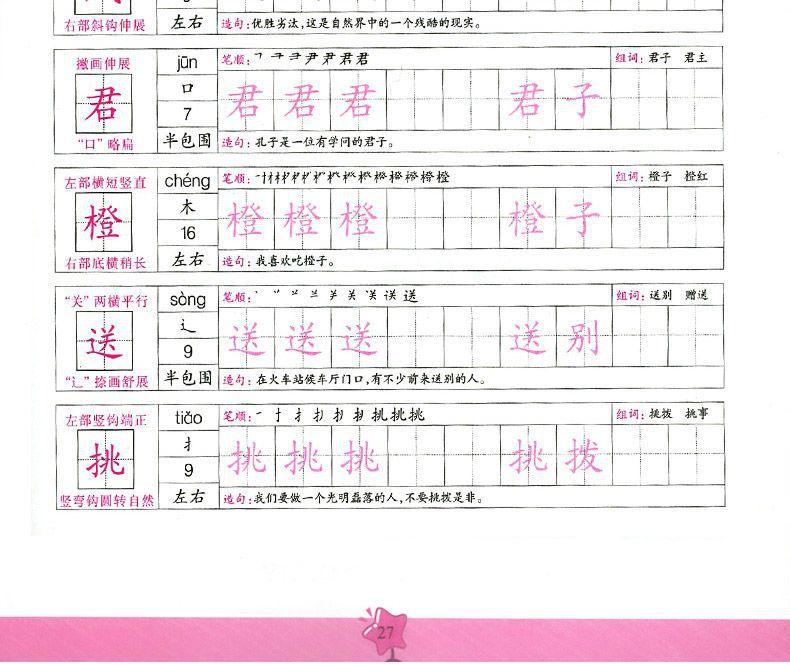 右部斜钩伸展 左右 造句:优胜劣汰,这是自然界中的一个残酷的现实。
撇画伸展 jūn 笔顺: 组词:君子 君主
君 口 君 君 君 君 子
7
“口”略扁 半包围 造句:孔子是一位有学问的君子。
左部横短竖直 chéng 笔顺: 组词:橙子 橙红
橙 木 橙 橙 橙 橙 子
16
右部底横稍长 左右 造句:我喜欢吃橙子。
“关”两横平行 sòng 笔顺: 组词:送别 赠送
送 辶 送 送 送 送 别
9
“辶”捺画舒展 半包围 造句:在火车站候车厅门口,有不少前来送别的人。
左部竖钩端正 tiǎo 笔顺: 组词:挑拨 挑事
挑 扌 挑 挑 挑 挑 拨
9
竖弯钩圆转自然 左右 造句:我们要做一个光明磊落的人,不要挑拨是非。
27